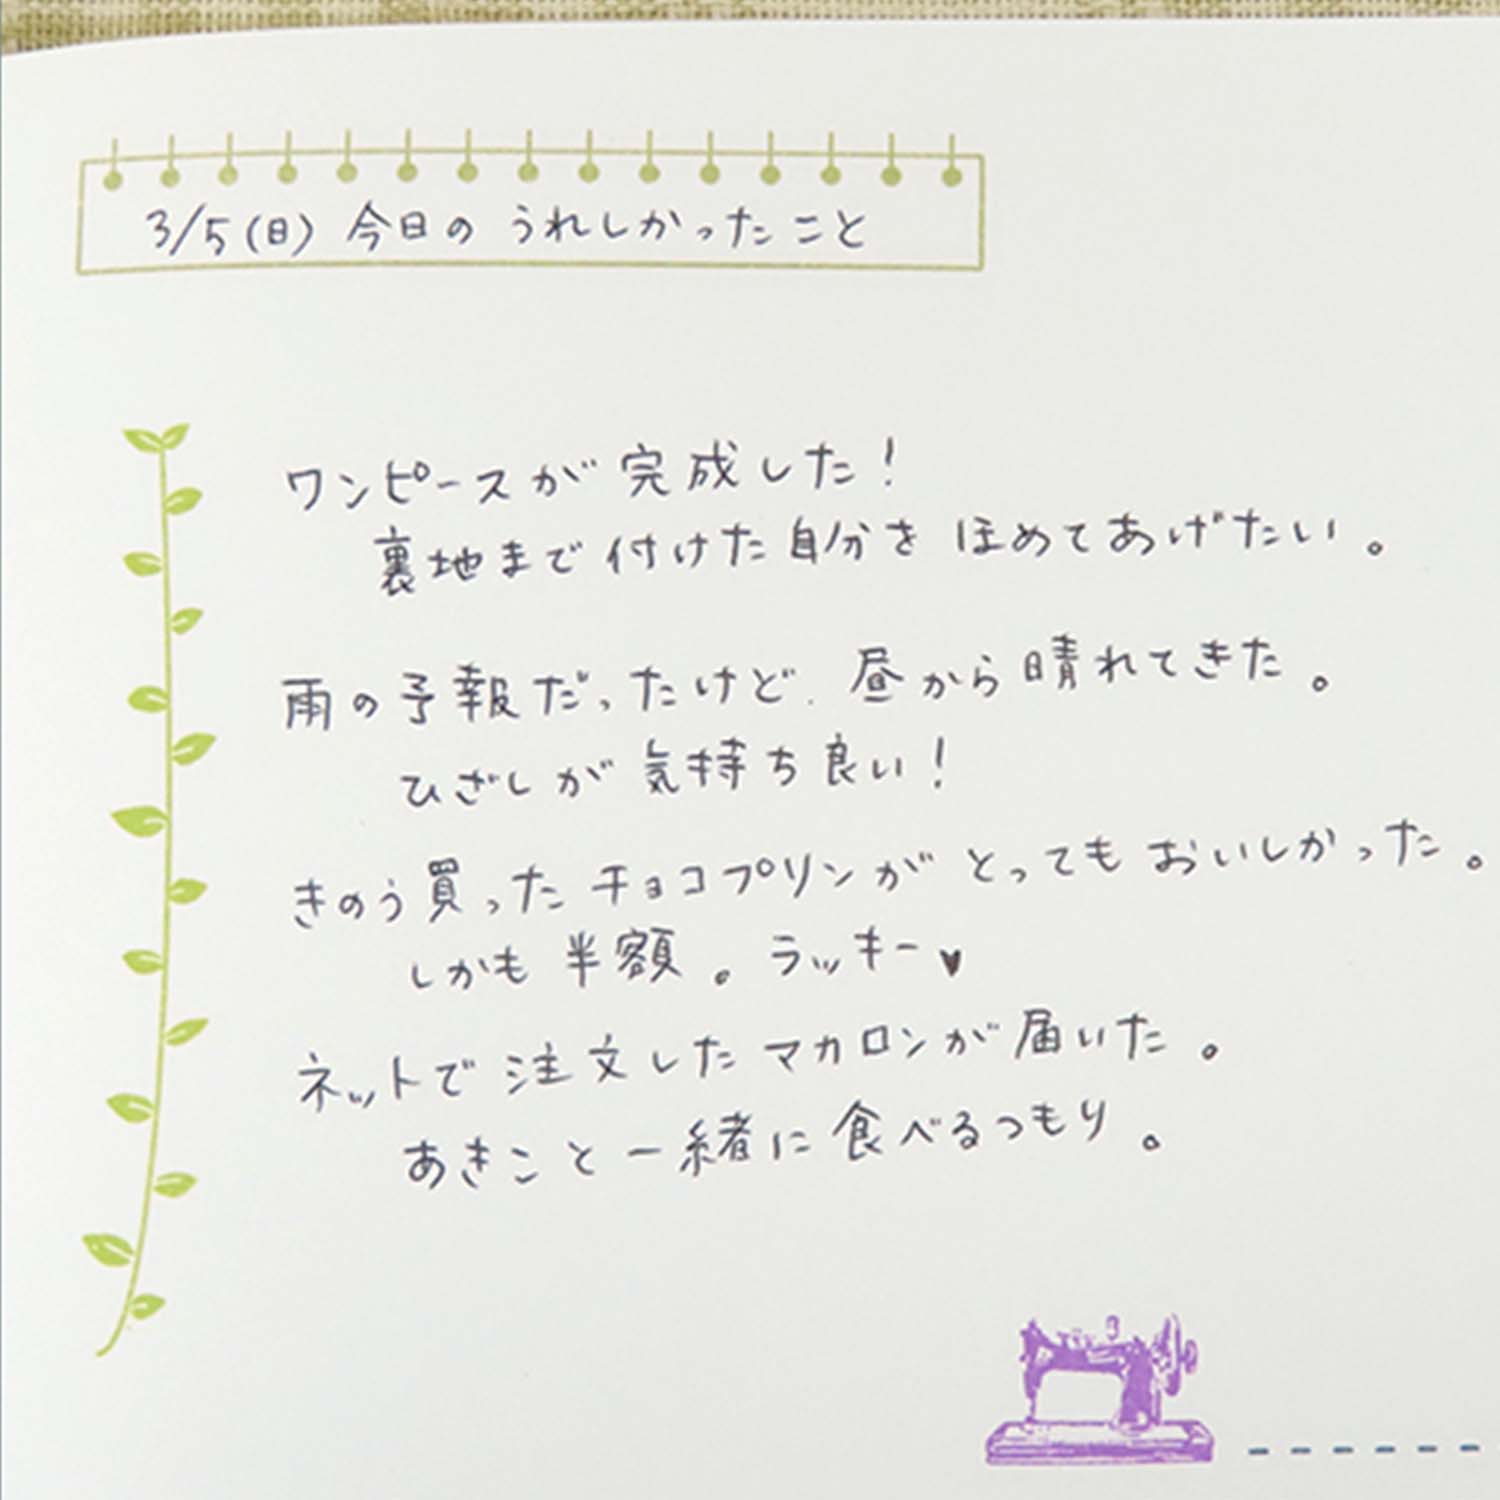 3/5(日) 今日の うれしかったこと
ワンピースが完成した!
裏地まで付けた自分を ほめてあげたい。
雨の予報だったけど、昼から晴れてきた。
ひざしが気持ち良い!
きのう買ったチョコプリンが とっても おいしかった。
しかも半額。ラッキー♥
ネットで注文したマカロンが届いた。
あきこと一緒に食べるつもり。